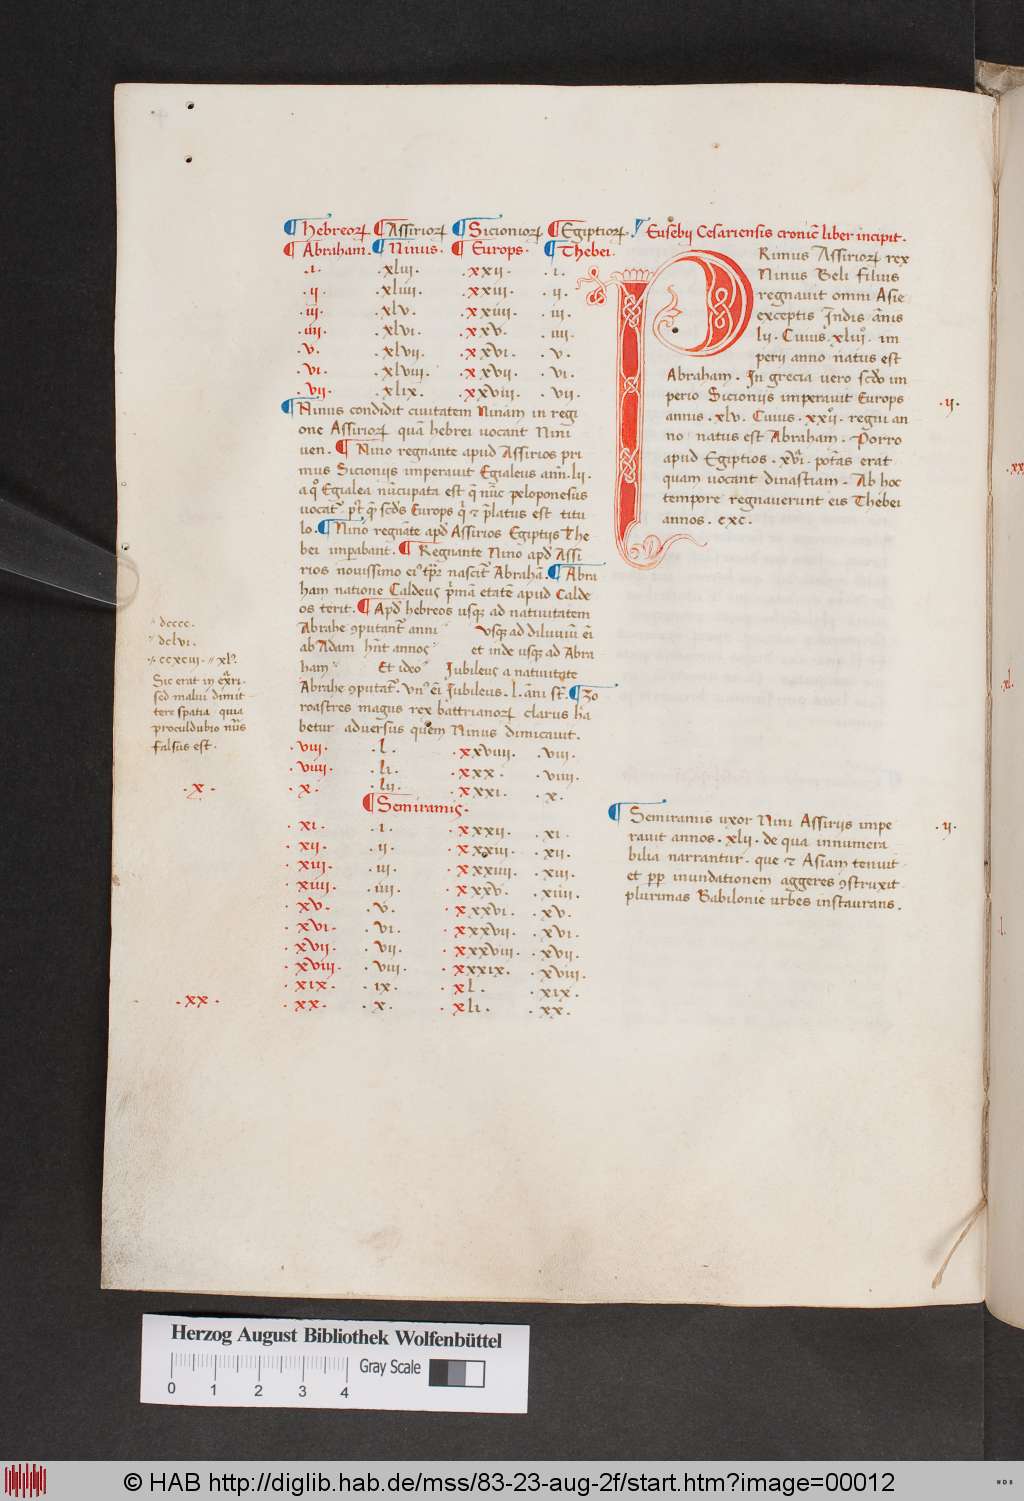 ¶ Hebreoꝝ ¶ Assirioꝝ ¶ Sicionioꝝ ¶ Egiptioꝝ.
¶ Abraham. ¶ Ninus. ¶ Europs. ¶ Thebei.
.i. .xliii. .xxii. .i.
.ii. .xliiii. .xxiii. .ii.
.iii. .xlv. .xxiiii. .iii.
.iiii. .xlvi. .xxv. .iiii.
.v. .xlvii. .xxvi. .v.
.vi. .xlviii. .xxvii. .vi.
.vii. .xlix. .xxviii. .vii.
¶ Ninus condidit civitatem Ninam in regi
one Assirioꝝ quā hebrei vocant Nini
ven. ¶ Nino regnante apud Assirios pri
mus Sicioniis imperavit Egialeus ann. lii.
a qͦ Egialea nūcupata est q̄ nūc peloponesus
vocat᷑. pꝰt q̄ scd̄s Europs qͥ ⁊ p̄latus est titu
lo. ¶ Nino regnāte apd̓ Assirios Egiptiis The
bei imꝑabant. ¶ Regnante Nino apd̓ Assi
rios novissimo eiꝰ tꝑe nascit᷑ Abrahā. ¶ Abra
ham natione Caldeus pͥmā etatē apud Calde
os terit. ¶ Apd̓ hebreos usqꝫ ad nativitatem
Abrahe ꝯputant᷑ anni usqꝫ ad diluviū ēi
ab Adam hn̄t annos et inde usqꝫ ad Abra
ham Et ideo Jubileus a nativitate
Abrahe ꝯputat᷑. Vnꝰ ēi Jubileus .l. āni st̄. ¶ Zo
roastres magus rex battrianoꝝ clarus ha
betur adversus quem Ninus dimicavit.
dcccc.
dclvi.
ccxciii. xlᵃ.
Sic erat in exꝰri.
sed malui dimit
tere spatia quia
proculdubio nūs
falsus est.
.viii. .l. .xxviiii. .viii.
.viiii. .li. .xxx. .viiii.
.x. .x. .lii. .xxxi. .x.
¶ Semiramis.
.xi. .i. .xxxii. .xi.
.xii. .ii. .xxxiii. .xii.
.xiii. .iii. .xxxiiii. .xiii.
.xiiii. .iiii. .xxxv. .xiiii.
.xv. .v. .xxxvi. .xv.
.xvi. .vi. .xxxvii. .xvi.
.xvii. .vii. .xxxviii. .xvii.
.xviii. .viii. .xxxix. .xviii.
.xix. .ix. .xl. .xix.
.xx. .xx. .x. .xli. .xx.
¶ Eusebii Cesariensis cronicē liber incipit.
PRimus Assirioꝝ rex
Ninus Beli filius
regnavit omni Asie
exceptis Indis ānis
lii. Cuius .xliiiᵒ. im
perii anno natus est
Abraham. In grecia vero scd̄o im
perio Sicioniis imperavit Europs
annis .xlv. Cuius .xxiiᵒ. regni an
no natus est Abraham. Porro
apud Egiptios .xvi. potās erat
quam vocant dinastiam. Ab hoc
tempore regnaverunt eis Thebei
annos .cxc.
.ii.
¶ Semiramis uxor Nini Assiriis impe
ravit annos .xlii. de qua innumera
bilia narrantur. que ⁊ Asiam tenuit
et ꝓp̄ inundationem aggeres ꝯstruxit
plurimas Babilonie urbes instaurans.
.ii.
Herzog August Bibliothek Wolfenbüttel
Gray Scale
0 1 2 3 4
© HAB http://diglib.hab.de/mss/83-23-aug-2f/start.htm?image=00012